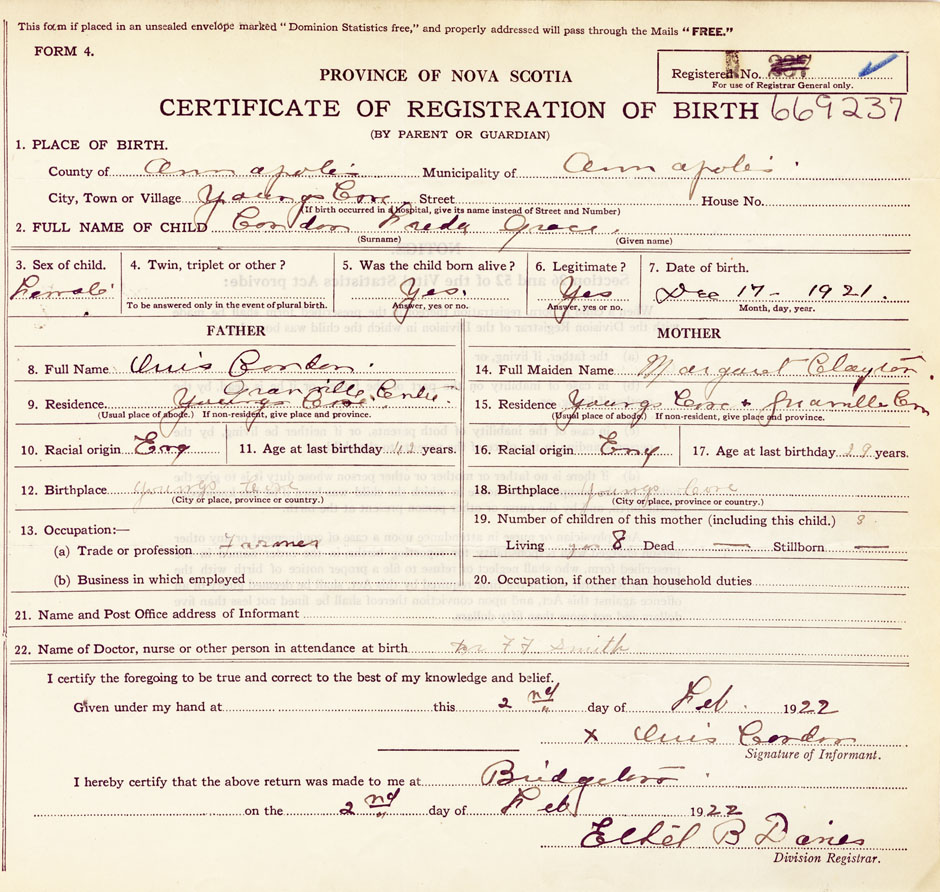 This form if placed in an unsealed envelope marked "Dominion Statistics free," and properly addressed will pass through the Mails "FREE."
FORM 4.
Registered No. 237
For use of Registrar General only.
PROVINCE OF NOVA SCOTIA
CERTIFICATE OF REGISTRATION OF BIRTH 669237
(BY PARENT OR GUARDIAN)
1. PLACE OF BIRTH.
County of Annapolis Municipality of Annapolis
City, Town or Village Youngs Cove Street House No.
(If birth occurred in a hospital, give its name instead of Street and Number)
2. FULL NAME OF CHILD Condon Freda Grace.
(Surname) (Given name)
3. Sex of child. 4. Twin, triplet or other? 5. Was the child born alive? 6. Legitimate? 7. Date of birth.
Female Yes. Yes Dec 17 - 1921.
To be answered only in the event of plural birth. Answer, yes or no. Answer, yes or no. Month, day, year.
FATHER MOTHER
8. Full Name Condon. 14. Full Maiden Name Margaret Clayton
Granville
9. Residence Youngs Cove. 15. Residence Youngs Cove + Granville
(Usual place of abode.) If non-resident, give place and province. (Usual place of abode.) If non-resident, give place and province.
10. Racial origin Eng 11. Age at last birthday 42 years. 16. Racial origin Eng 17. Age at last birthday years.
12. Birthplace Youngs Cove 18. Birthplace Youngs Cove
(City or place, province or country.) (City or place, province or country.)
13. Occupation:— 19. Number of children of this mother (including this child.) 8
(a) Trade or profession Farmer Living 8 Dead — Stillborn —
(b) Business in which employed 20. Occupation, if other than household duties
21. Name and Post Office address of Informant
22. Name of Doctor, nurse or other person in attendance at birth Dr F F Smith
I certify the foregoing to be true and correct to the best of my knowledge and belief.
Given under my hand at this 2nd day of Feb. 1922
x Condon
Signature of Informant.
I hereby certify that the above return was made to me at Bridgetown
on the 2nd day of Feb 1922
Ethel B Davies
Division Registrar.